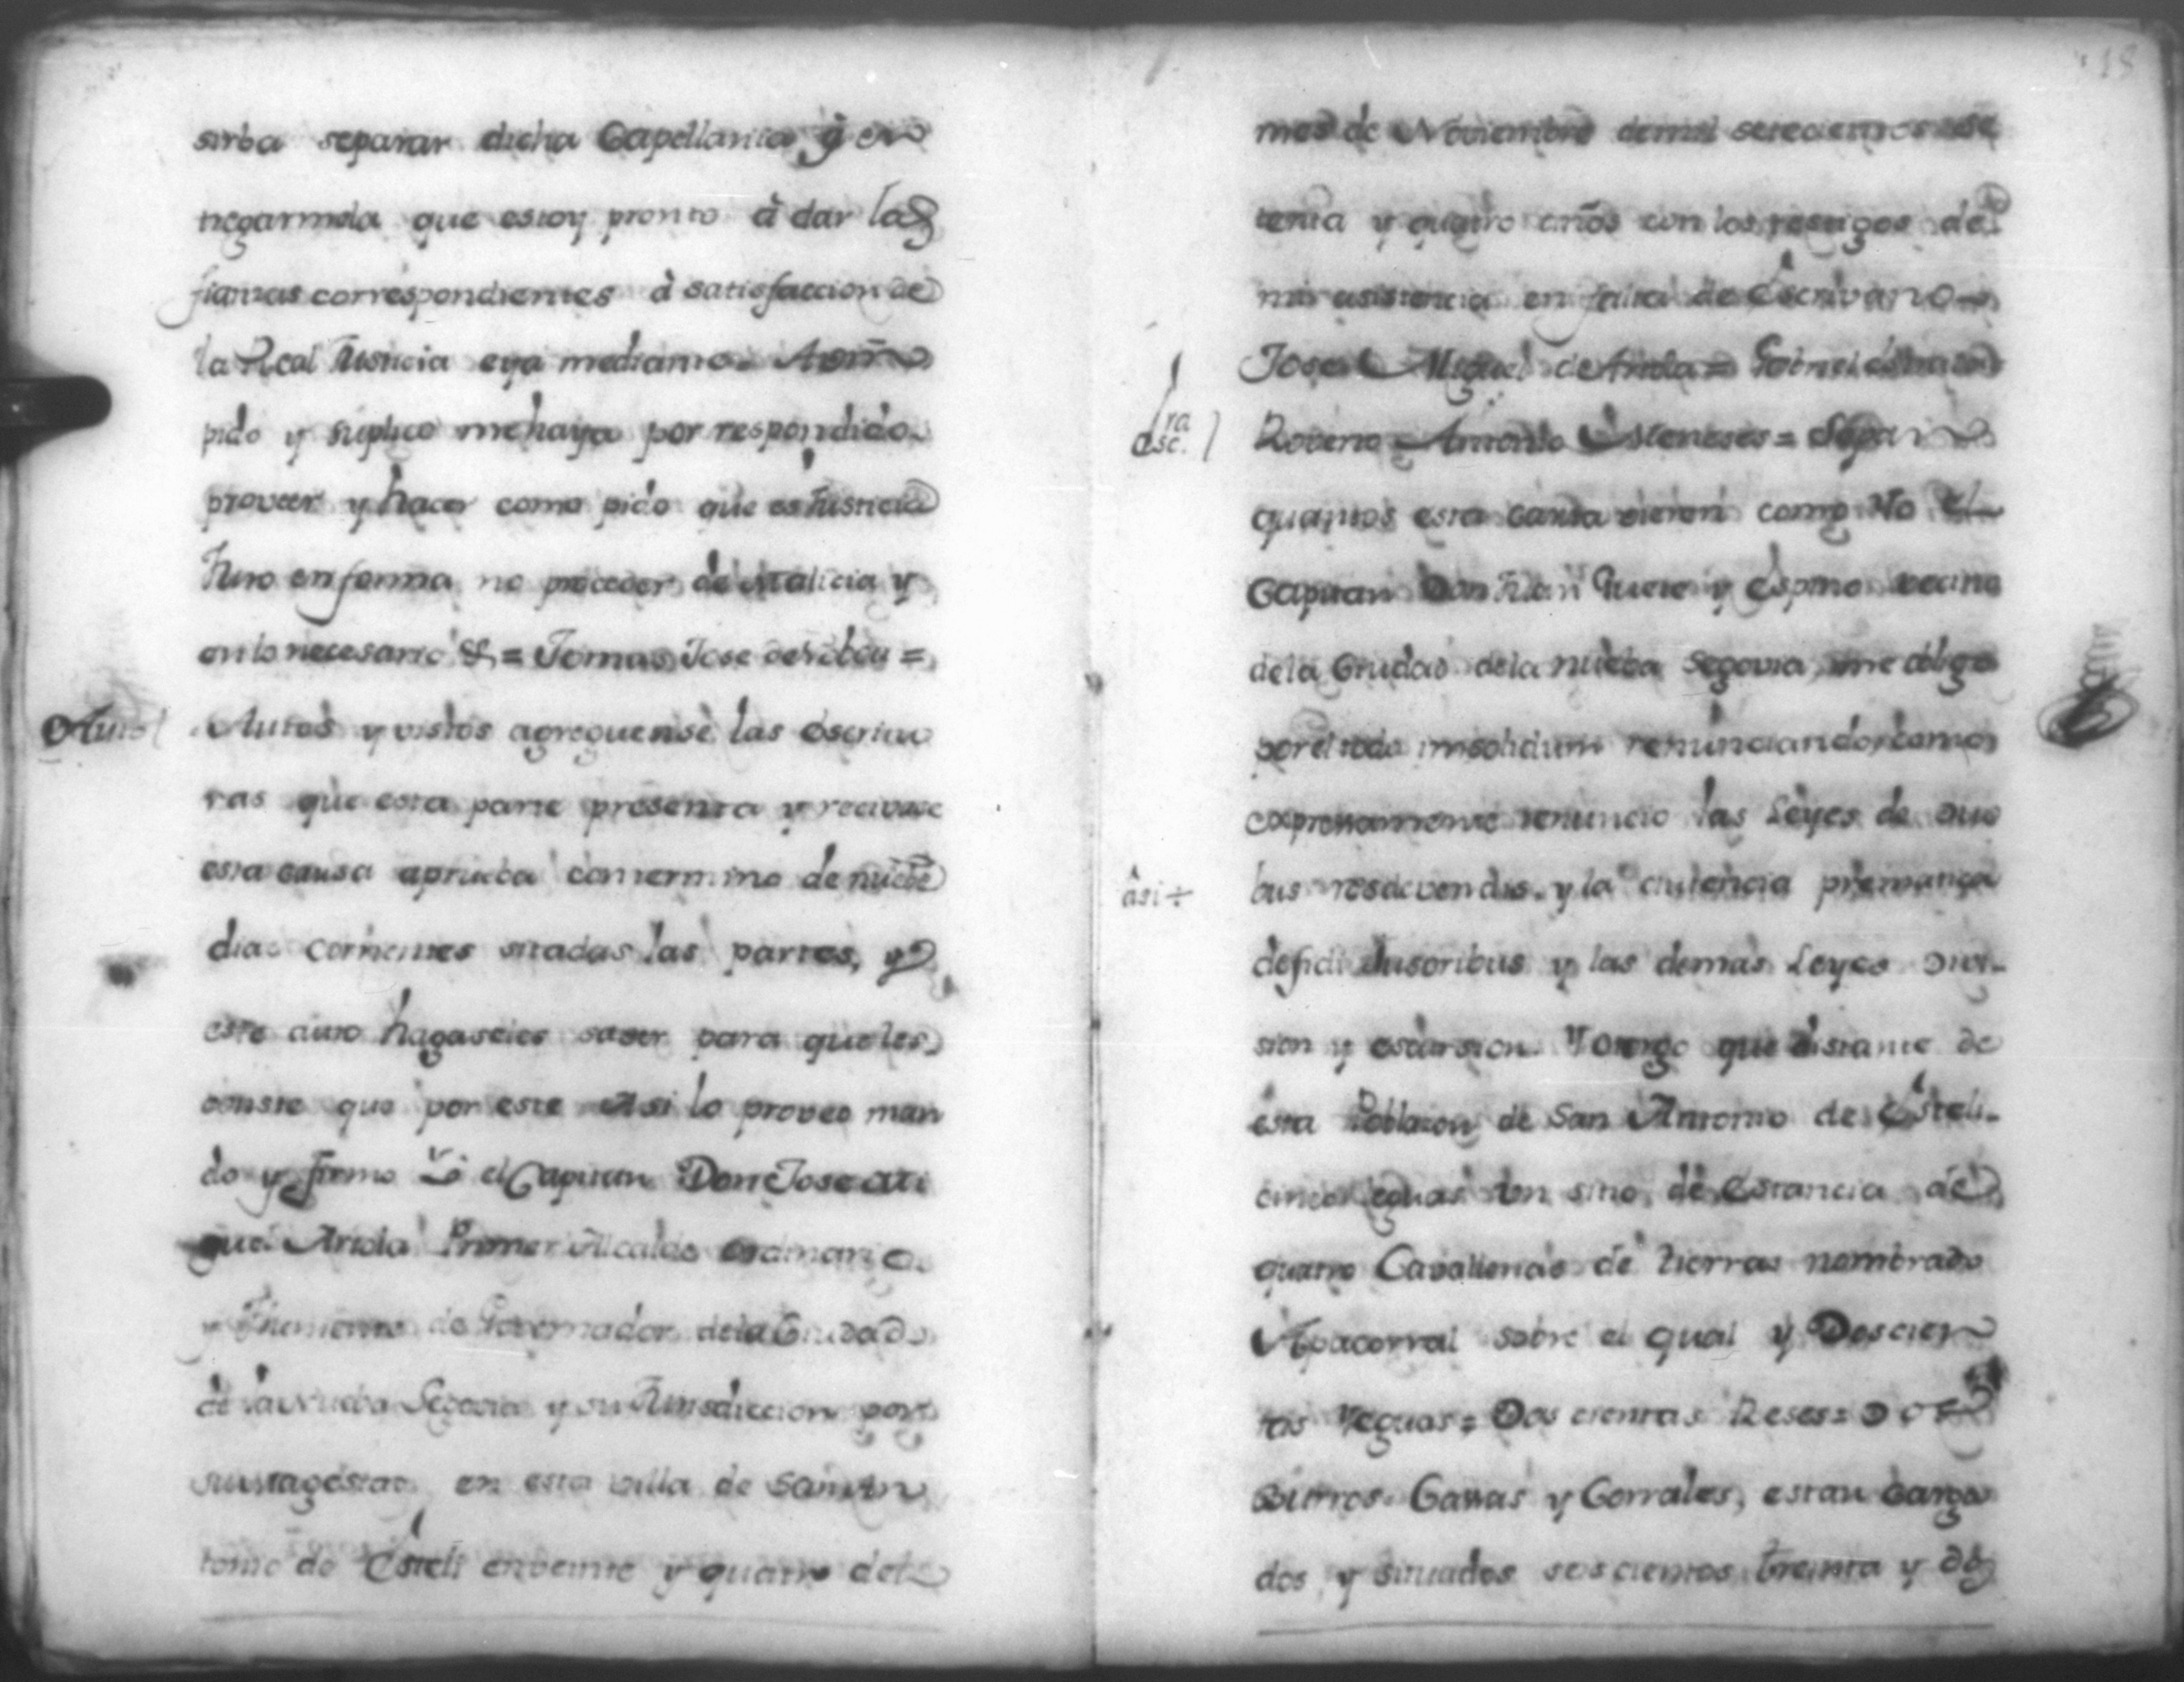 sirba separar dicha Capellania y en
tregarmela que estoy pronto à dar las
fianzas correspondientes à satisfaccion de
la Real Justicia eya mediante
pido y suplico mehaya por respondido
proveer y hacer como pido que es Justicia
Juro en forma no proceder de malicia y
en lo necesario &c = Tomas Jose =
Auto
Autos y vistos agreguense las escritu
ras que esta parte presenta y recivase
esta causa aprueba con termino de nueve
dias corrientes sitadas las partes, y
este auto hagaseles saser para queles
conste que por este Asi lo proveo man
do y firmo Yo el Capitan Don Jose Mi
guel Ariola Primer Alcalde ordinario
y Theniente de Governador dela Ciudad
de la Nueba Segovia y su Jurisdiccion por
su Magestad en esta villa de San An
tonio de Esteli en veinte y quatro del
18
mes de Noviembre demil setecientos se
tenta y quatro años con los testigos de
mi asistencia en falta de Escrivano
Jose Miguel de Ariola = Gabriel
esc.ra
Antonio Meneses = Sepan
quantos esta carta vieren como Yo el
Capitan Don Juan y Espino vecino
dela Ciudad dela nueba Segovia me obligo
por el todo insolidum renunciando, como
expresamente renuncio las Leyes de duo
asi÷
bus resdevendis. y la autencia presente
defidi Jusoribus y las demas Leyes Divi-
sion y escursion. Y otorgo que distante de
esta Poblazon de San Antonio de Esteli-
cinco leguas un sitio de Estancia de
quatro Cavallerias de tierras nombrado
Apacorral sobre el qual y Doscien
tas Yeguas = Dos cientas Reses = Dos
Burros. Cassas y Corrales, estan carga
dos y situados seiscientos treinta y dos